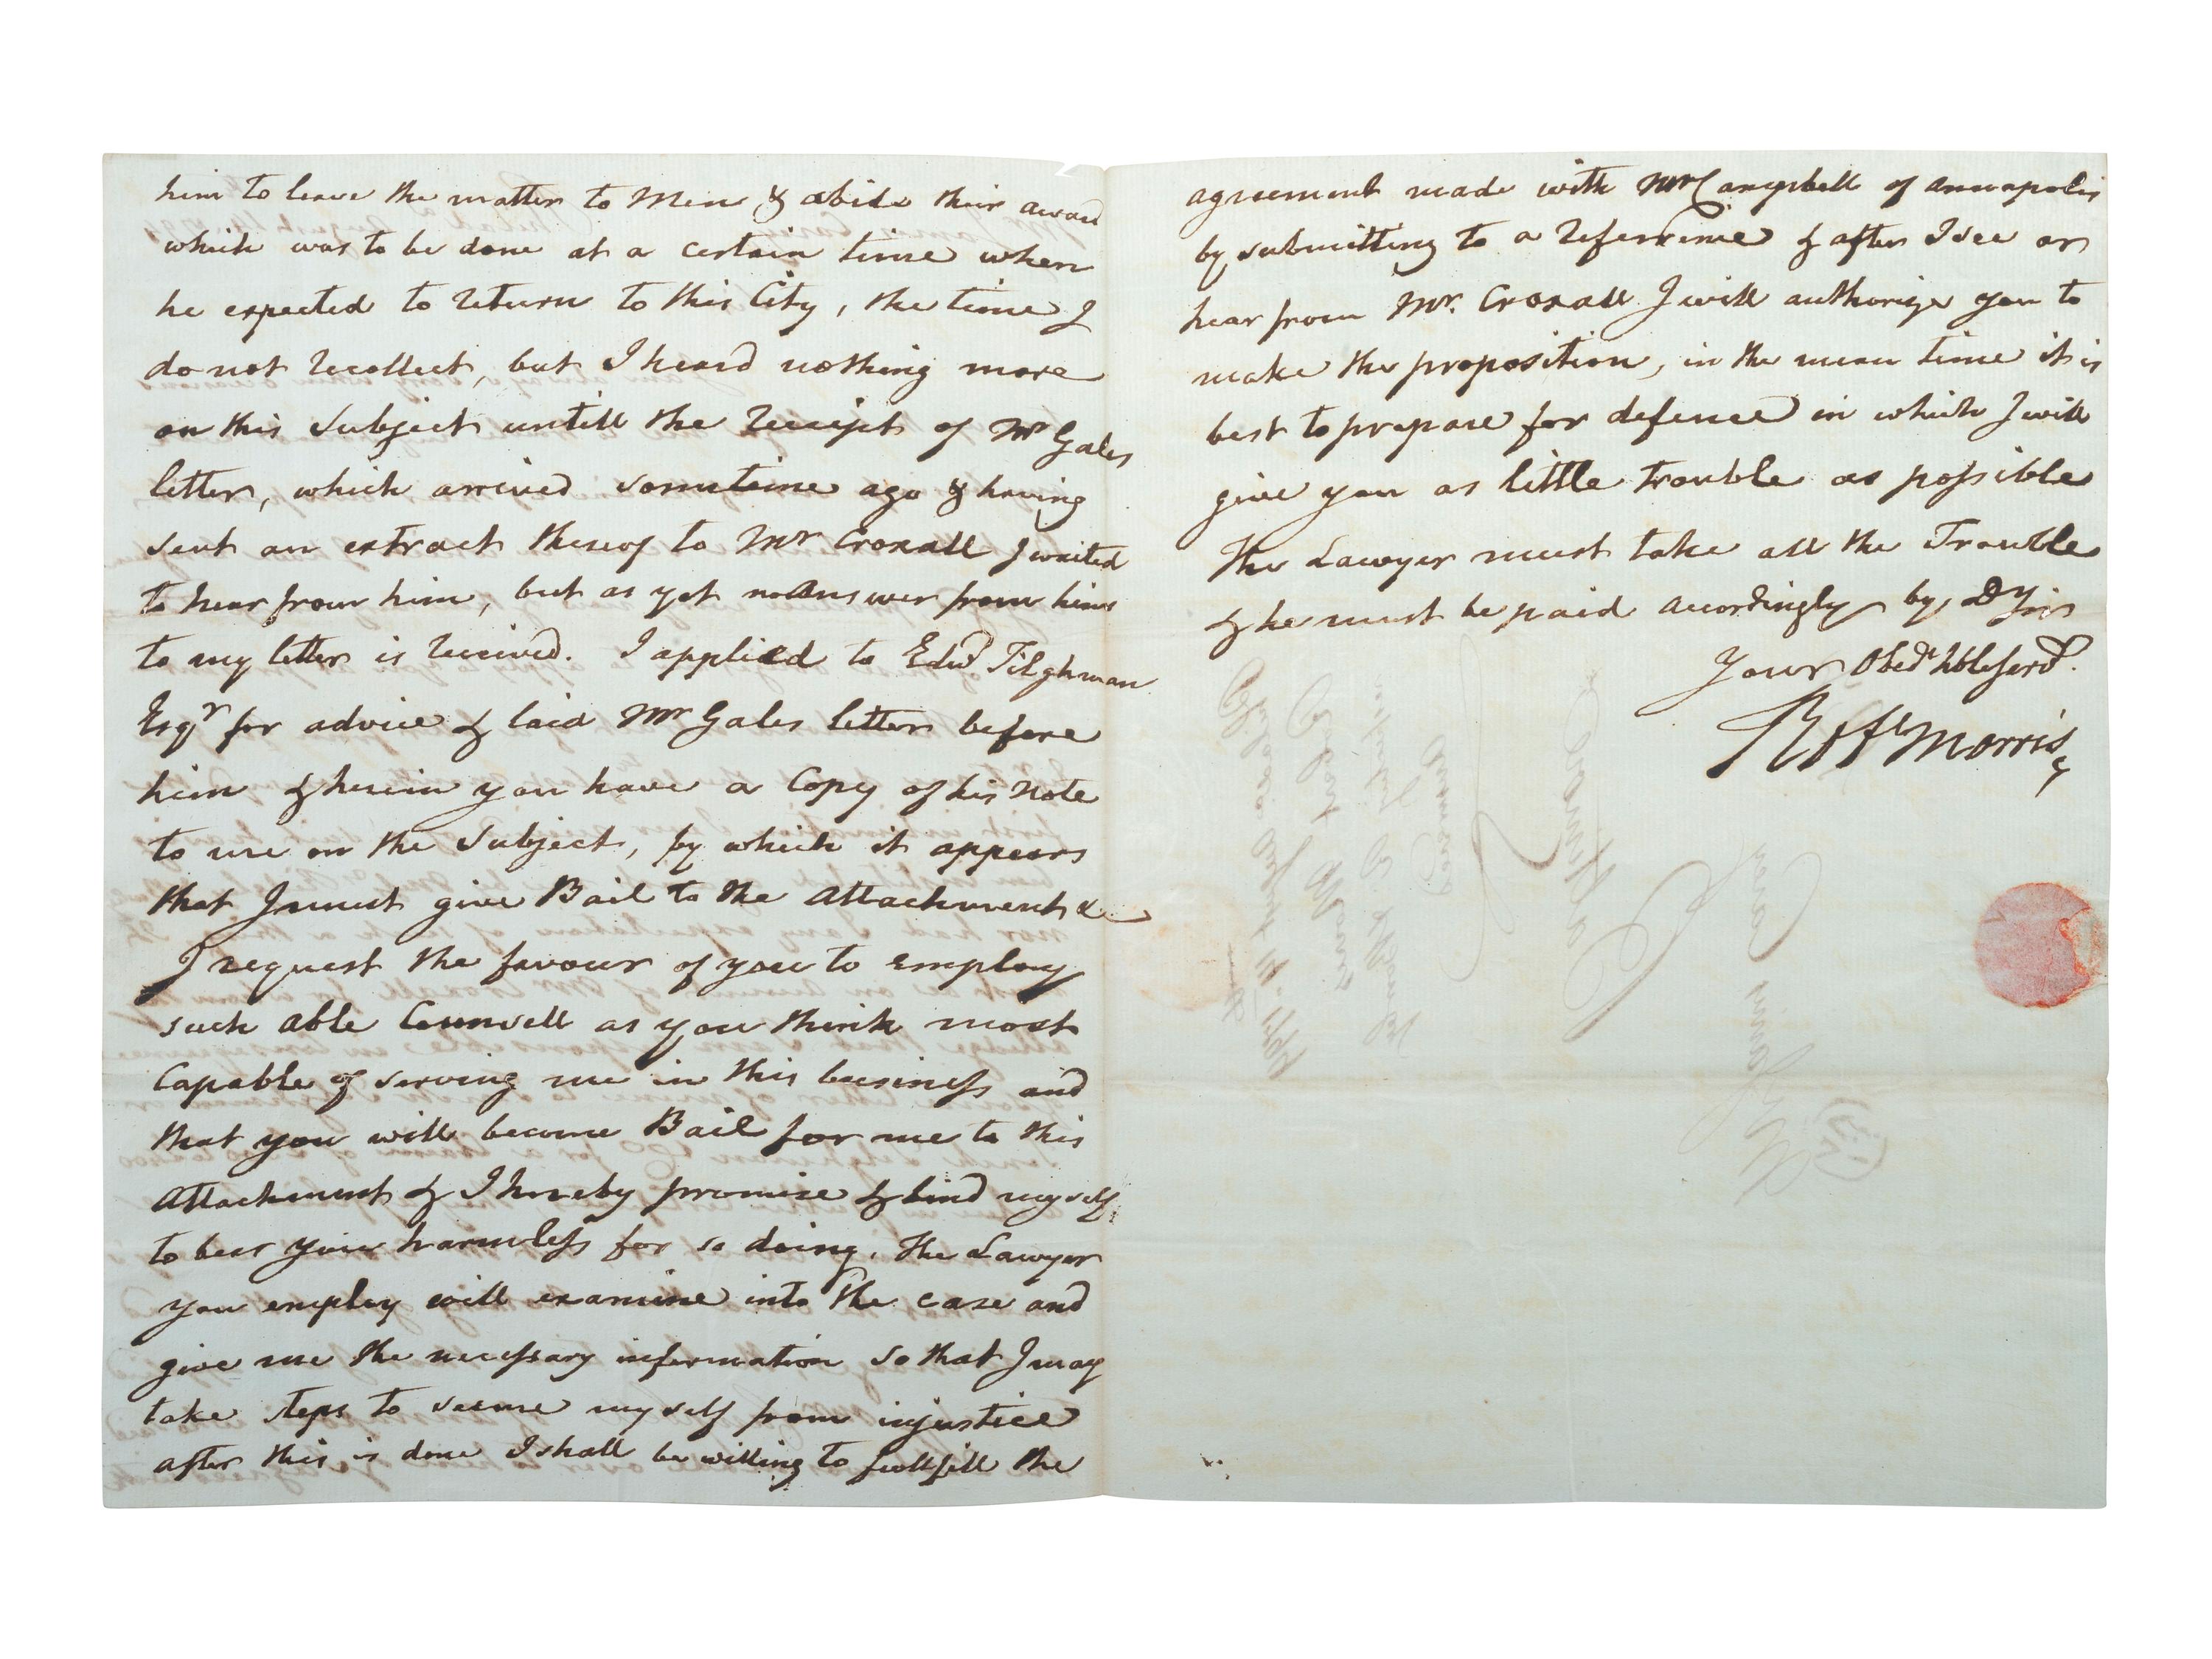 him to leave the matter to Men & abide their award
which was to be done at a certain time when
he expected to return to this City, the time I
do not recollect, but I heard nothing more
on this subject untill the receipt of Mr Gales
letter, which arrived sometime ago & having
sent an extract thereof to Mr Croxall I waited
to hear from him, but as yet no answer from him
to my letter is received. I applied to Edwd Tilghman
Esqr for advice & laid Mr Gales letter before
him & herein you have a Copy of his Note
to me on the Subject, by which it appears
that I must give Bail to the Attachment &
I request the favour of you to employ
such able Counsell as you think most
Capable of serving me in this business and
that you will become Bail for me to this
Attachment & I hereby promise & bind myself
to bear you harmless for so doing. The Lawyer
you employ will examine into the case and
give me the necessary information so that I may
take steps to secure myself from injustice
after this is done I shall be willing to fullfill the
agreement made with Mr Campbell of Annapolis
by submitting to a reference & after I see or
hear from Mr. Croxall I will authorize you to
make the proposition, in the mean time it is
best to prepare for defence in which I will
give you as little trouble as possible
The Lawyer must take all the Trouble
& he must be paid accordingly by Dr Sir
Your Obedt hble servt.
Robt Morris